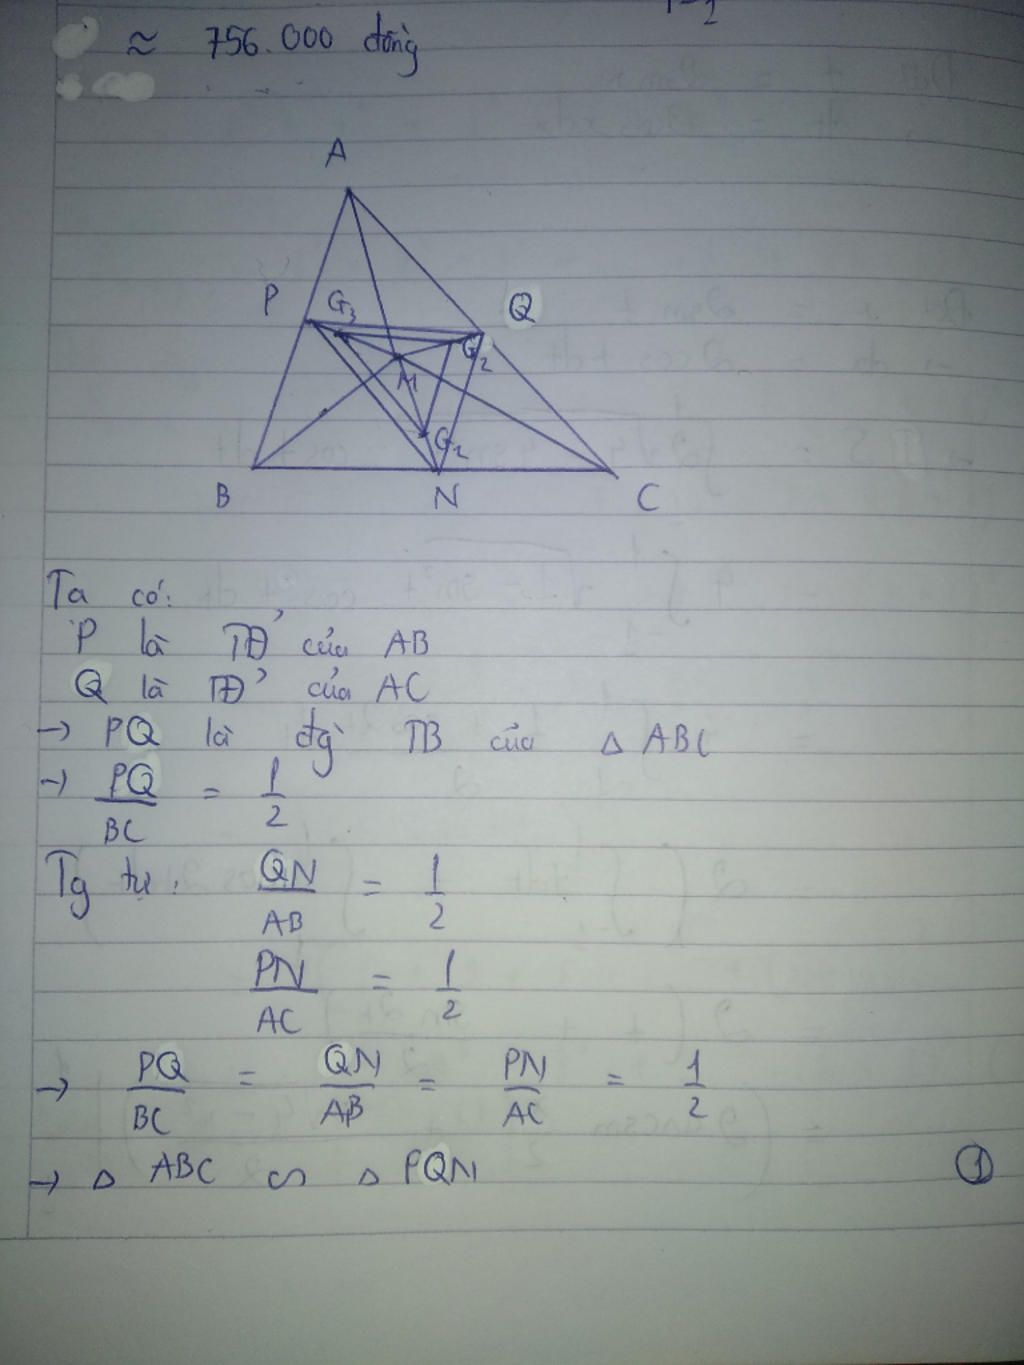 ≈ 756.000 đồng
A
P G3 Q
G2
M
G2
B N C
Ta có:
P là TĐ' của AB
Q là TĐ' của AC
→ PQ là đg` TB của △ ABC
→ PQ/BC = 1/2
Tg tự: QN/AB = 1/2
PN/AC = 1/2
→ PQ/BC = QN/AB = PN/AC = 1/2
→ △ ABC ∽ △ PQN ①